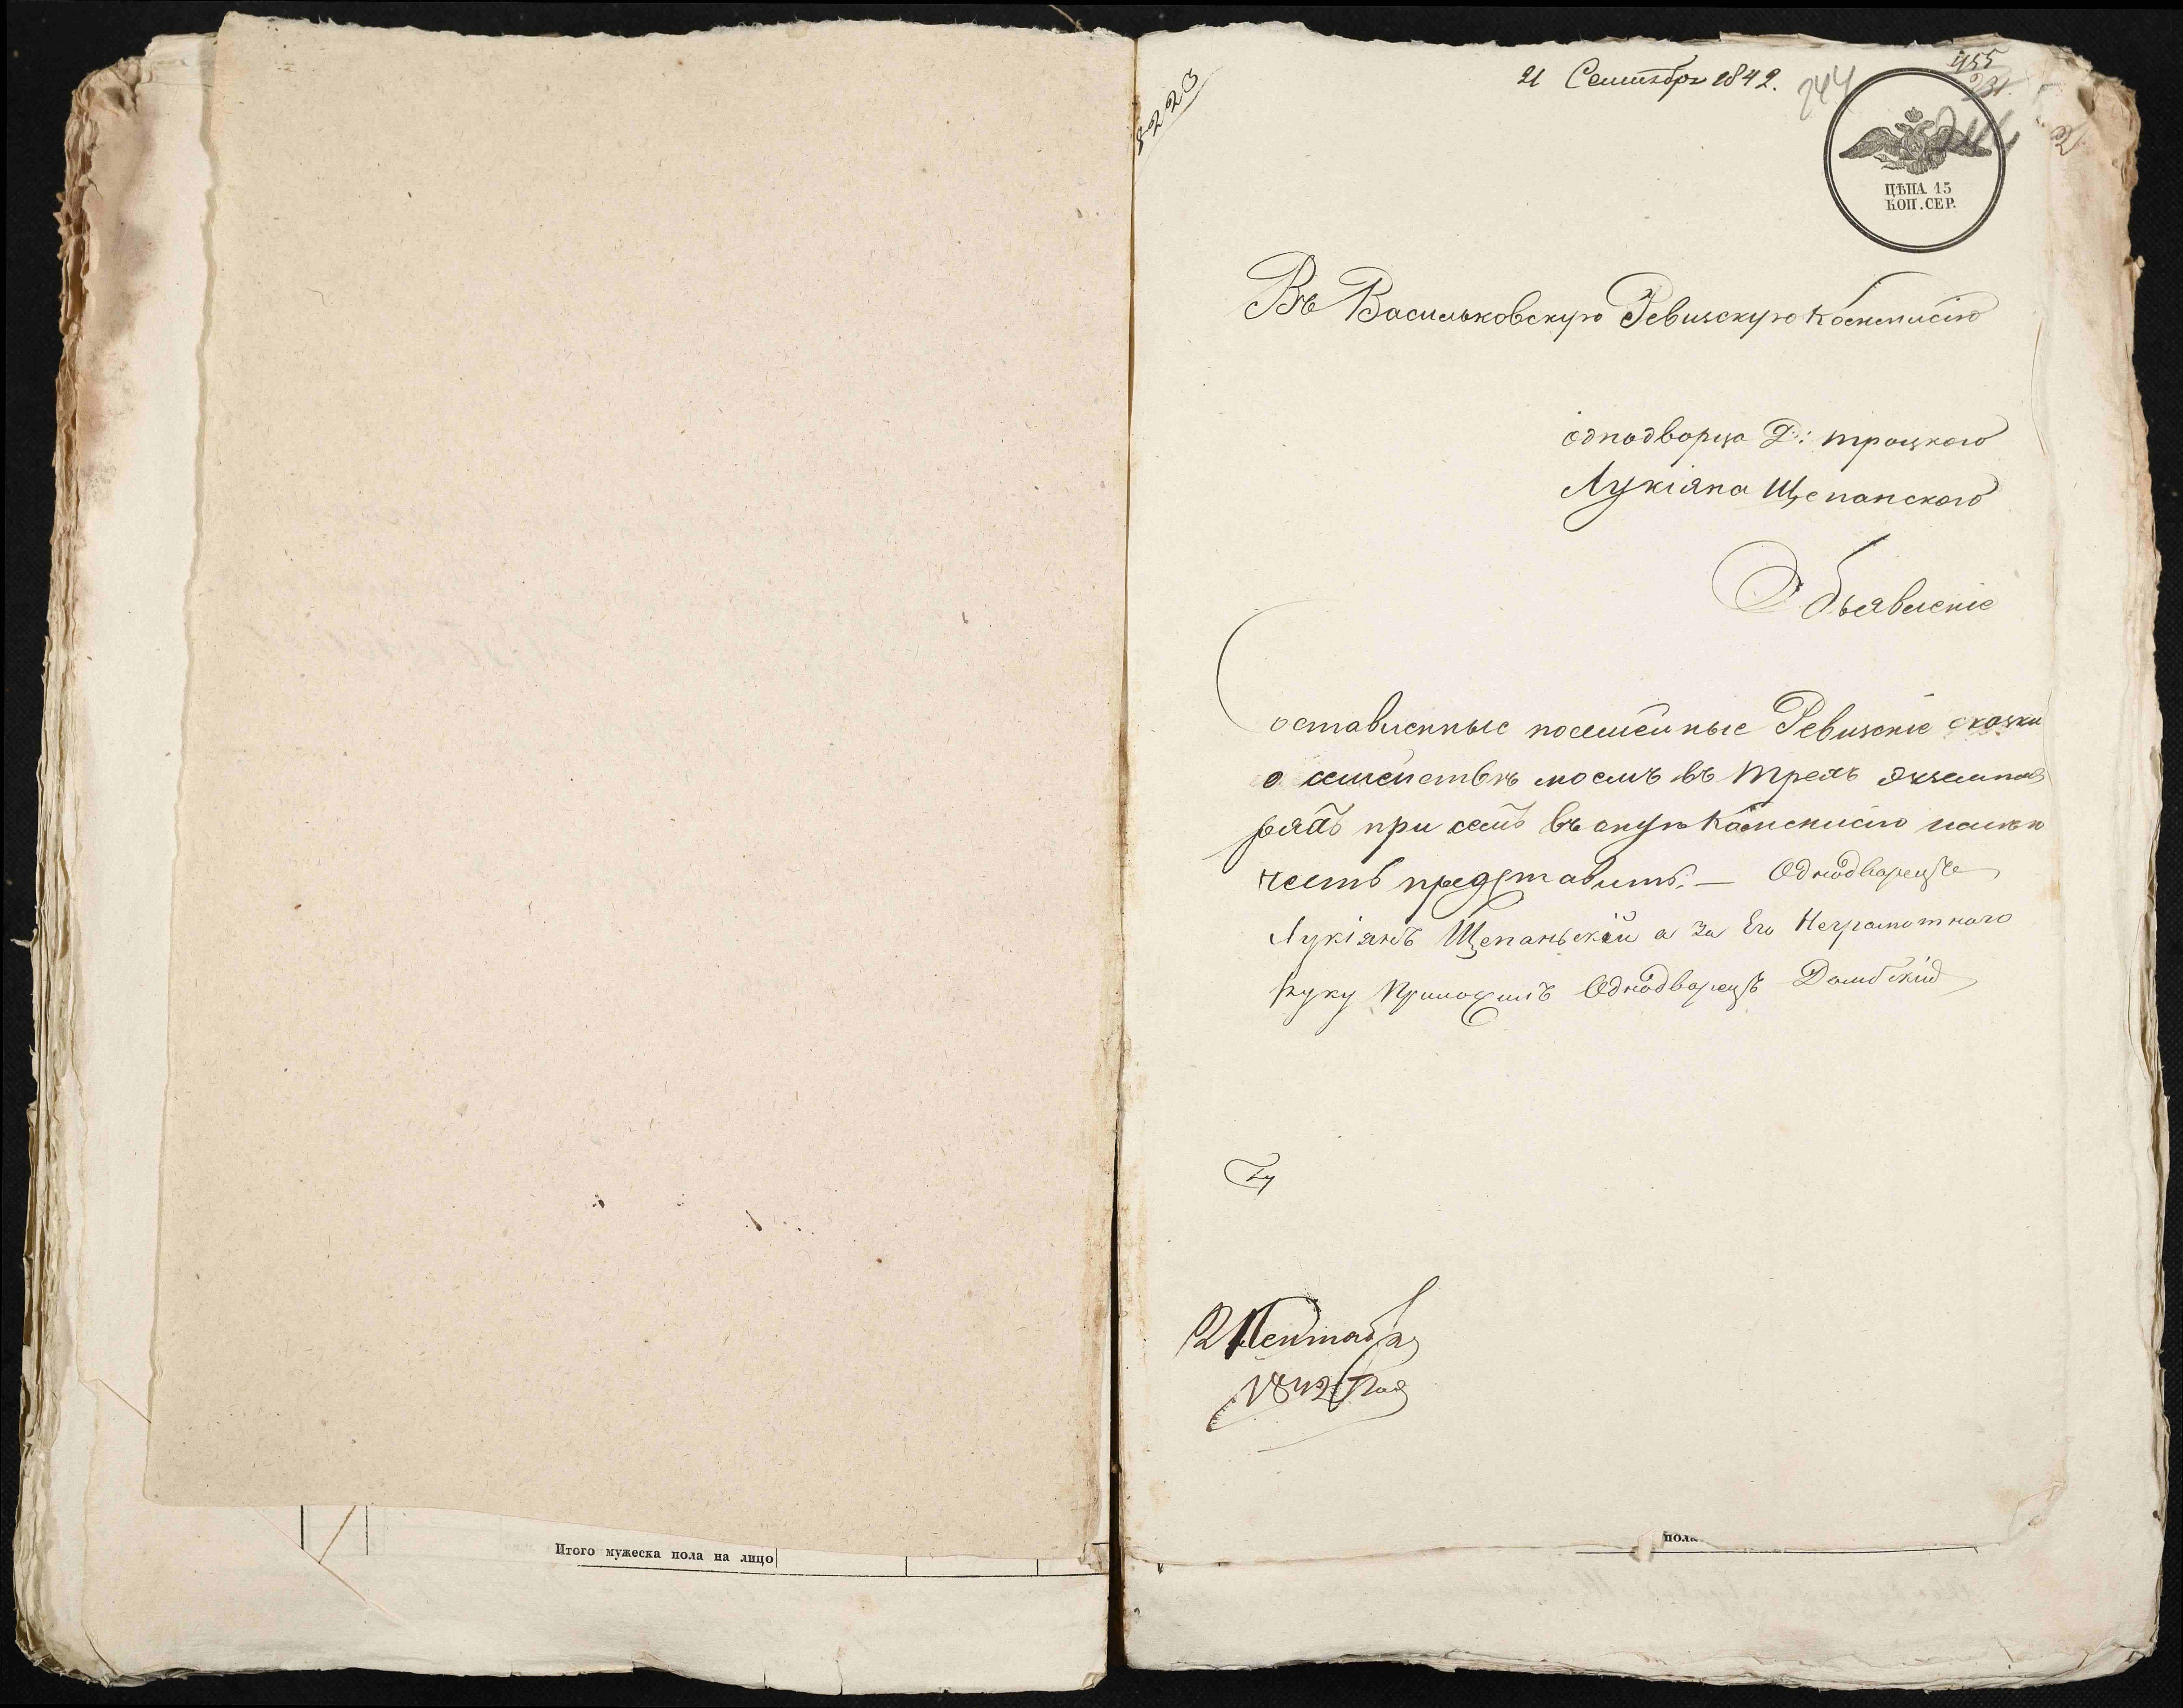 Итого мужеска пола на лицо
5223
21 Сентября 1842.
244
455
231.
ЦѢНА 15
КОП. СЕР.
Въ Васильковскую Ревизскую Коммисію
однодворца Д: Троцкого
Лукіяна Щепанского
Объявленіе
Составленные посемейные Ревизскіе сказки
о семействѣ моемъ въ трехъ экземпля
рахъ при семъ въ оную Коммисію имѣю
честь представить. — Однодворецъ
Лукіянъ Щепаньскій а за Его Неграмотного
руку Приложилъ Однодворецъ Домбскій
21 Сентября
1842 Года
пола